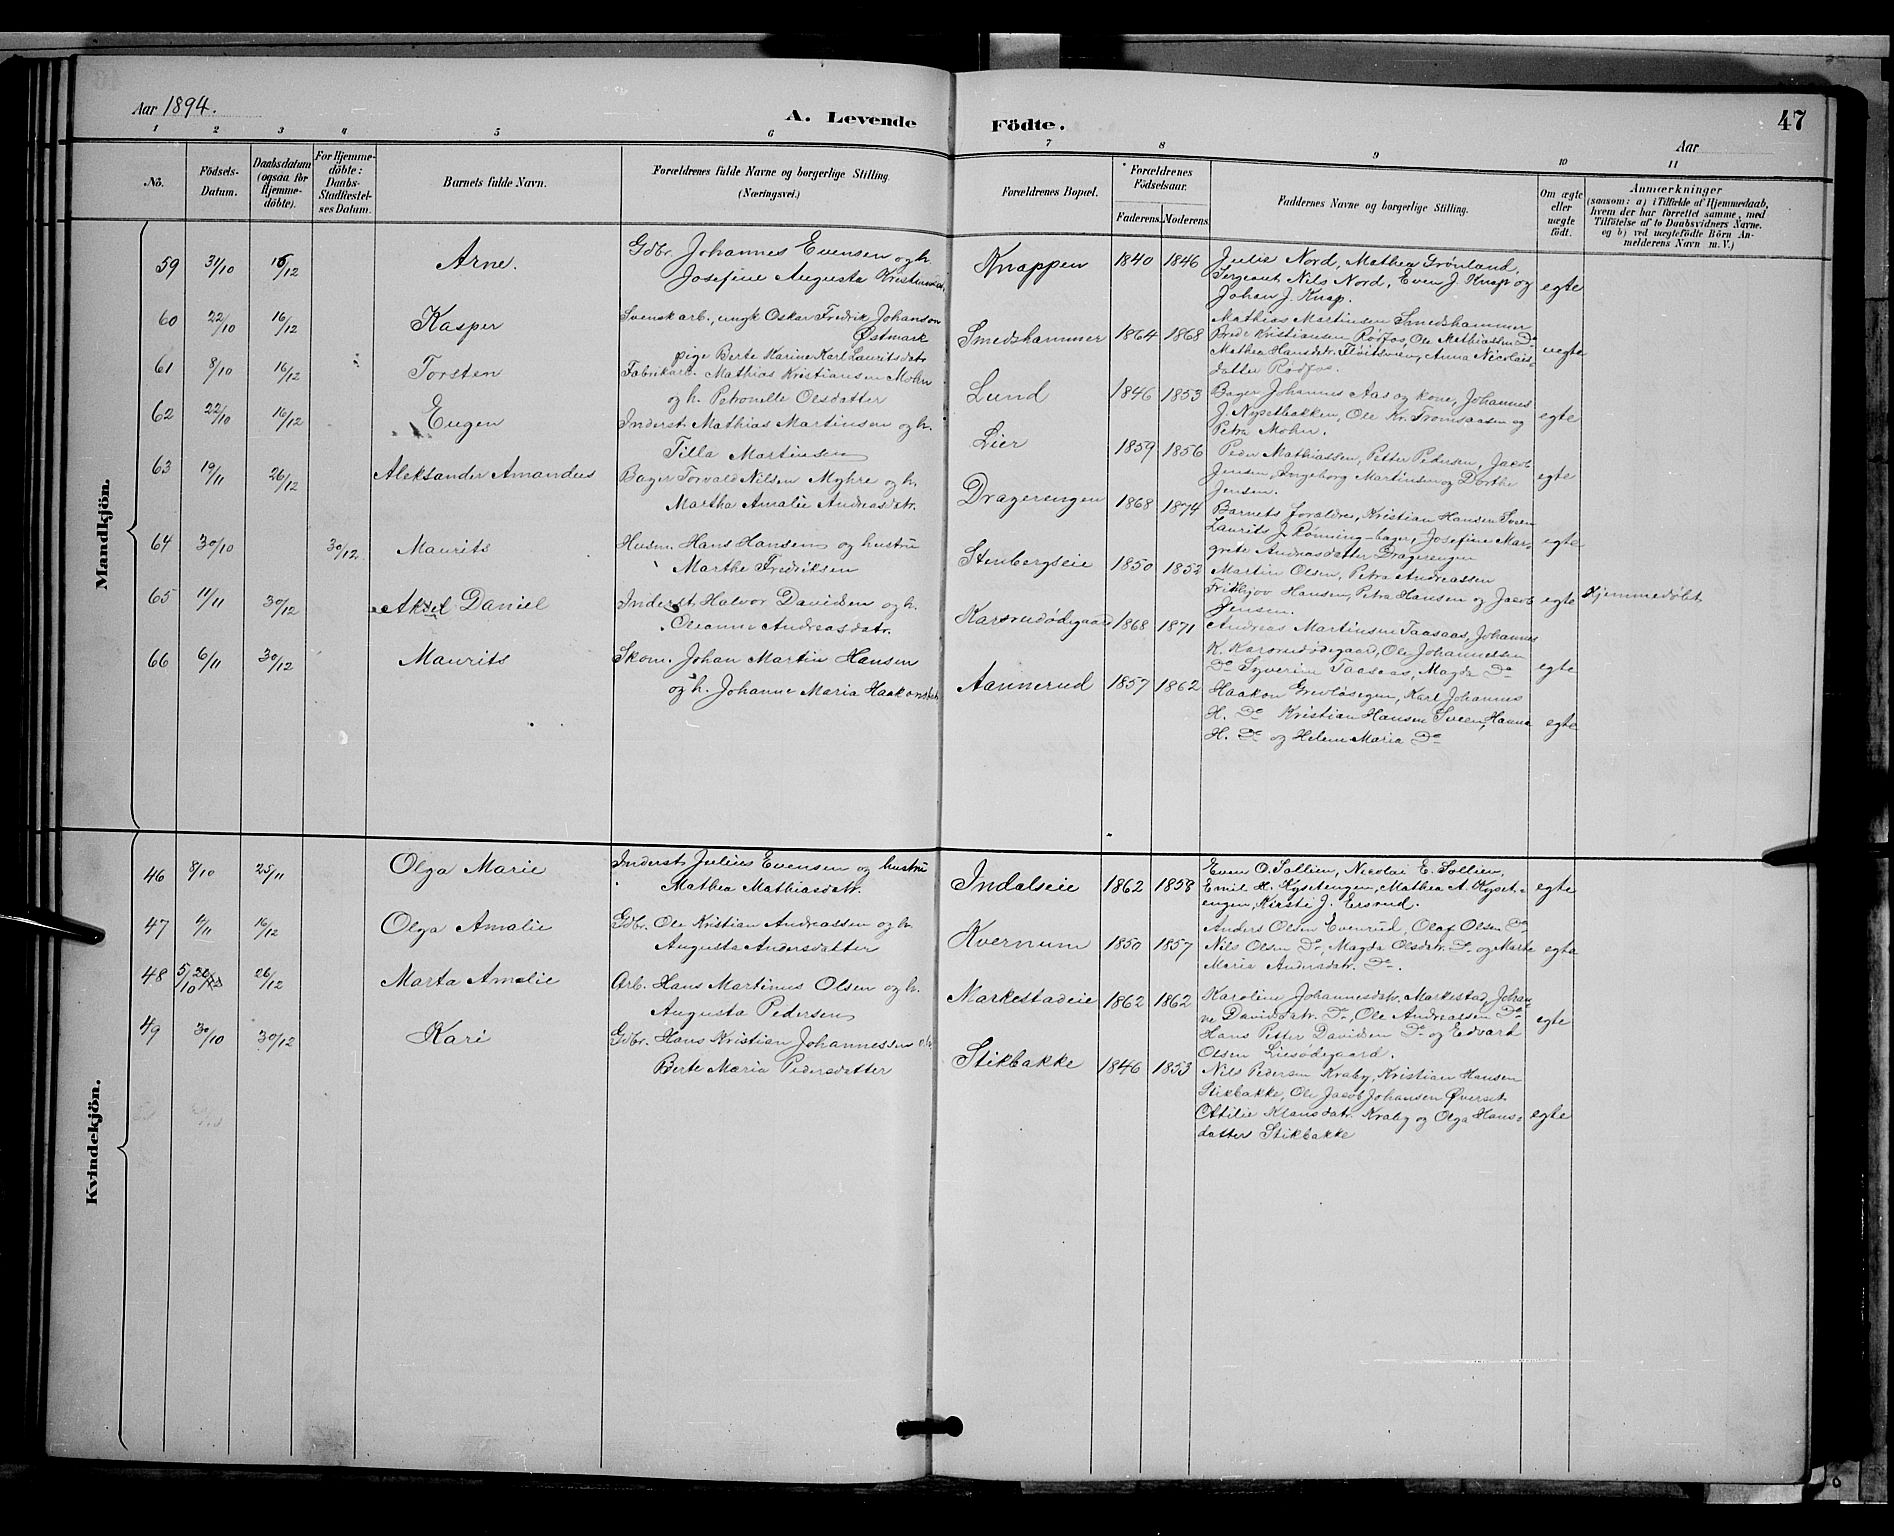 Aar 1894.
A. Levende Födte.
47
Aar
1 2 3 4 5 6 7 8 9 10 11
No.
Födsels-
Datum.
Daabsdatum
(ogsaa for
Hjemme-
döbte).
For Hjemme-
döbte:
Daabs-
Stadfæstel-
ses Datum.
Barnets fulde Navn.
Forældrenes fulde Navne og borgerlige Stilling.
(Næringsvei.)
Forældrenes Bopæl.
Forældrenes
Födselsaar.
Faderens. Moderens.
Faddernes Navne og borgerlige Stilling.
Om ægte
eller
uægte
födt.
Anmærkninger
(saasom: a) i Tilfælde af Hjemmedaab,
hvem der har forrettet samme, med
Tilföielse af to Daabsvidners Navne.
og b) ved uægtefödte Börn An-
melderens Navn m. V.)
Mandkjön.
59 31/10 16/12 Arne.
Gdbr. Johannes Evensen og h.
Josefine Augusta Kristiansdtr.
Knappen 1840 1846
Julie Nord, Mathea Grönland,
Sergeant Nils Nord, Even J. Knap og
Johan J. Knap.
egte
60 22/10 16/12 Kasper
Svensk arb., ungk Oskar Fredrik Johanson
Østmark
pige Berte Karine Karl Lauritsdatr
Smedshammer 1864 1868
Mathias Martinsen Smedshammer
Brede Kristiansen Røjfos, Ole Mathiassen Do
Mathea Hansdatr. Fløitsveen, Anna Nicolais-
datter Rødfos.
uegte
61 8/10 16/12 Torsten
Fabrikarb. Mathias Kristiansen Mohn
og h. Petronelle Olsdatter
Lund 1846 1853
Bager Johannes Aas og kone, Johannes
J. Nysetbakken, Ole Kr. Fromsaasen og
Petra Mohn.
egte
62 22/10 16/12 Eugen
Inderst. Mathias Martinsen og h.
Tilla Martinsen
Lier 1859 1856
Peder Mathiassen, Petter Pedersen, Jacob
Jensen, Ingeborg Martinsen og Dorthe
Jensen.
egte
63 19/11 26/12 Aleksander Amandus
Bager Torvald Nilsen Myhre og h.
Martha Amalie Andreasdatr.
Dragerengen 1868 1874
Barnets forældre, Kristian Hansen Sveen
Laurits J. Rønning-bager, Josefine Mar-
grete Andreasdatter Dragerengen
egte
64 30/10 30/12 Maurits
Husm. Hans Hansen og hustru
Marthe Fredriksen
Stenbergseie 1850 1852
Martin Olsen, Petra Andreassen
Frithjov Hansen, Petra Hansen og Jacob
Jensen.
egte Hjemmedøbt
65 11/11 30/12 Aksel Daniel
Inderst. Halvor Davidsen og h.
Oleanne Andreasdatr.
Karsrudødegaard 1868 1871
Andreas Martinsen Taasaas, Johannes
K. Karsrudødegaard, Ole Johannessen
Do Syverin Taasaas, Magda Do
egte
66 6/11 30/12 Maurits
Skom. Johan Martin Hansen
og h. Johanne Maria Haakonsdatr.
Aannerud 1857 1862
Haakon Grevløsegen, Karl Johannes
H. Do Kristian Hansen Sveen, Hanna
H. Do og Helene Maria Do
egte
Kvindekjön.
46 8/10 25/11 Olga Marie
Inderst. Julius Evensen og hustru
Mathea Mathiasdatr.
Indalseie 1862 1858
Even O. Sollien, Nicolai E. Sollien,
Emil H. Kysetengen, Mathea A. Kyset-
engen, Kirsti J. Eersrud.
egte
47 4/11 16/12 Olga Amalie
Gdbr. Ole Kristian Andreassen og h.
Augusta Andersdatter
Kvernum 1850 1857
Anders Olsen Evenrud, Olaf Olsen Do
Nils Olsen Do, Magda Olsdatr. Do og Marte
Maria Andersdatr. Do.
egte
48 5/10 26/12 Marta Amalie
Arb. Hans Martinus Olsen og h.
Augusta Pedersen
Markestadeie 1862 1862
Karoline Johannesdatr. Markestad, Johan-
ne Davidsdatr. Do, Ole Andreassen Do
Hans Petter Davidsen Do og Edvart
Olsen Liesødegaard.
egte
49 30/10 30/12 Kari
Gdbr. Hans Kristian Johannessen o.h.
Berte Maria Pedersdatter
Stikbakke 1846 1853
Nils Pedersen Kraby, Kristian Hansen
Stikbakke, Ole Jacob Johansen Øverset
Ottilie Klausdatr. Kraby og Olga Hans-
datter Stikbakke
egte